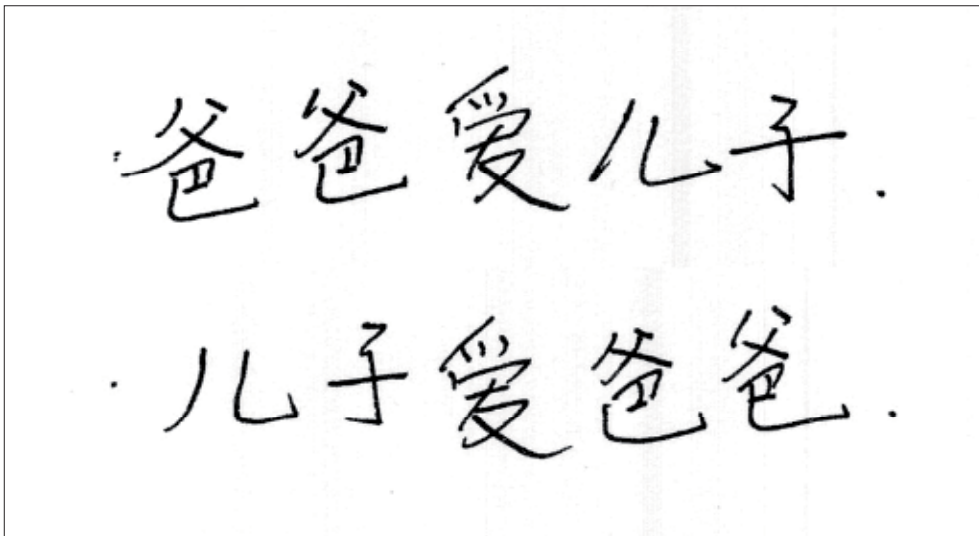 爸爸爱儿子.
儿子爱爸爸.